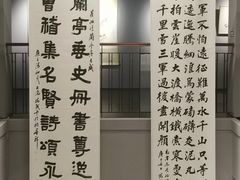 軍不怕遠征難萬水千山只等
逶迤騰細浪烏蒙磅礴走泥丸
拍雲崖暖大渡橋橫鐵索寒更
千里雪三軍過後盡開顏
蘭亭垂史冊書尊逸
會稽集名賢詩頌永